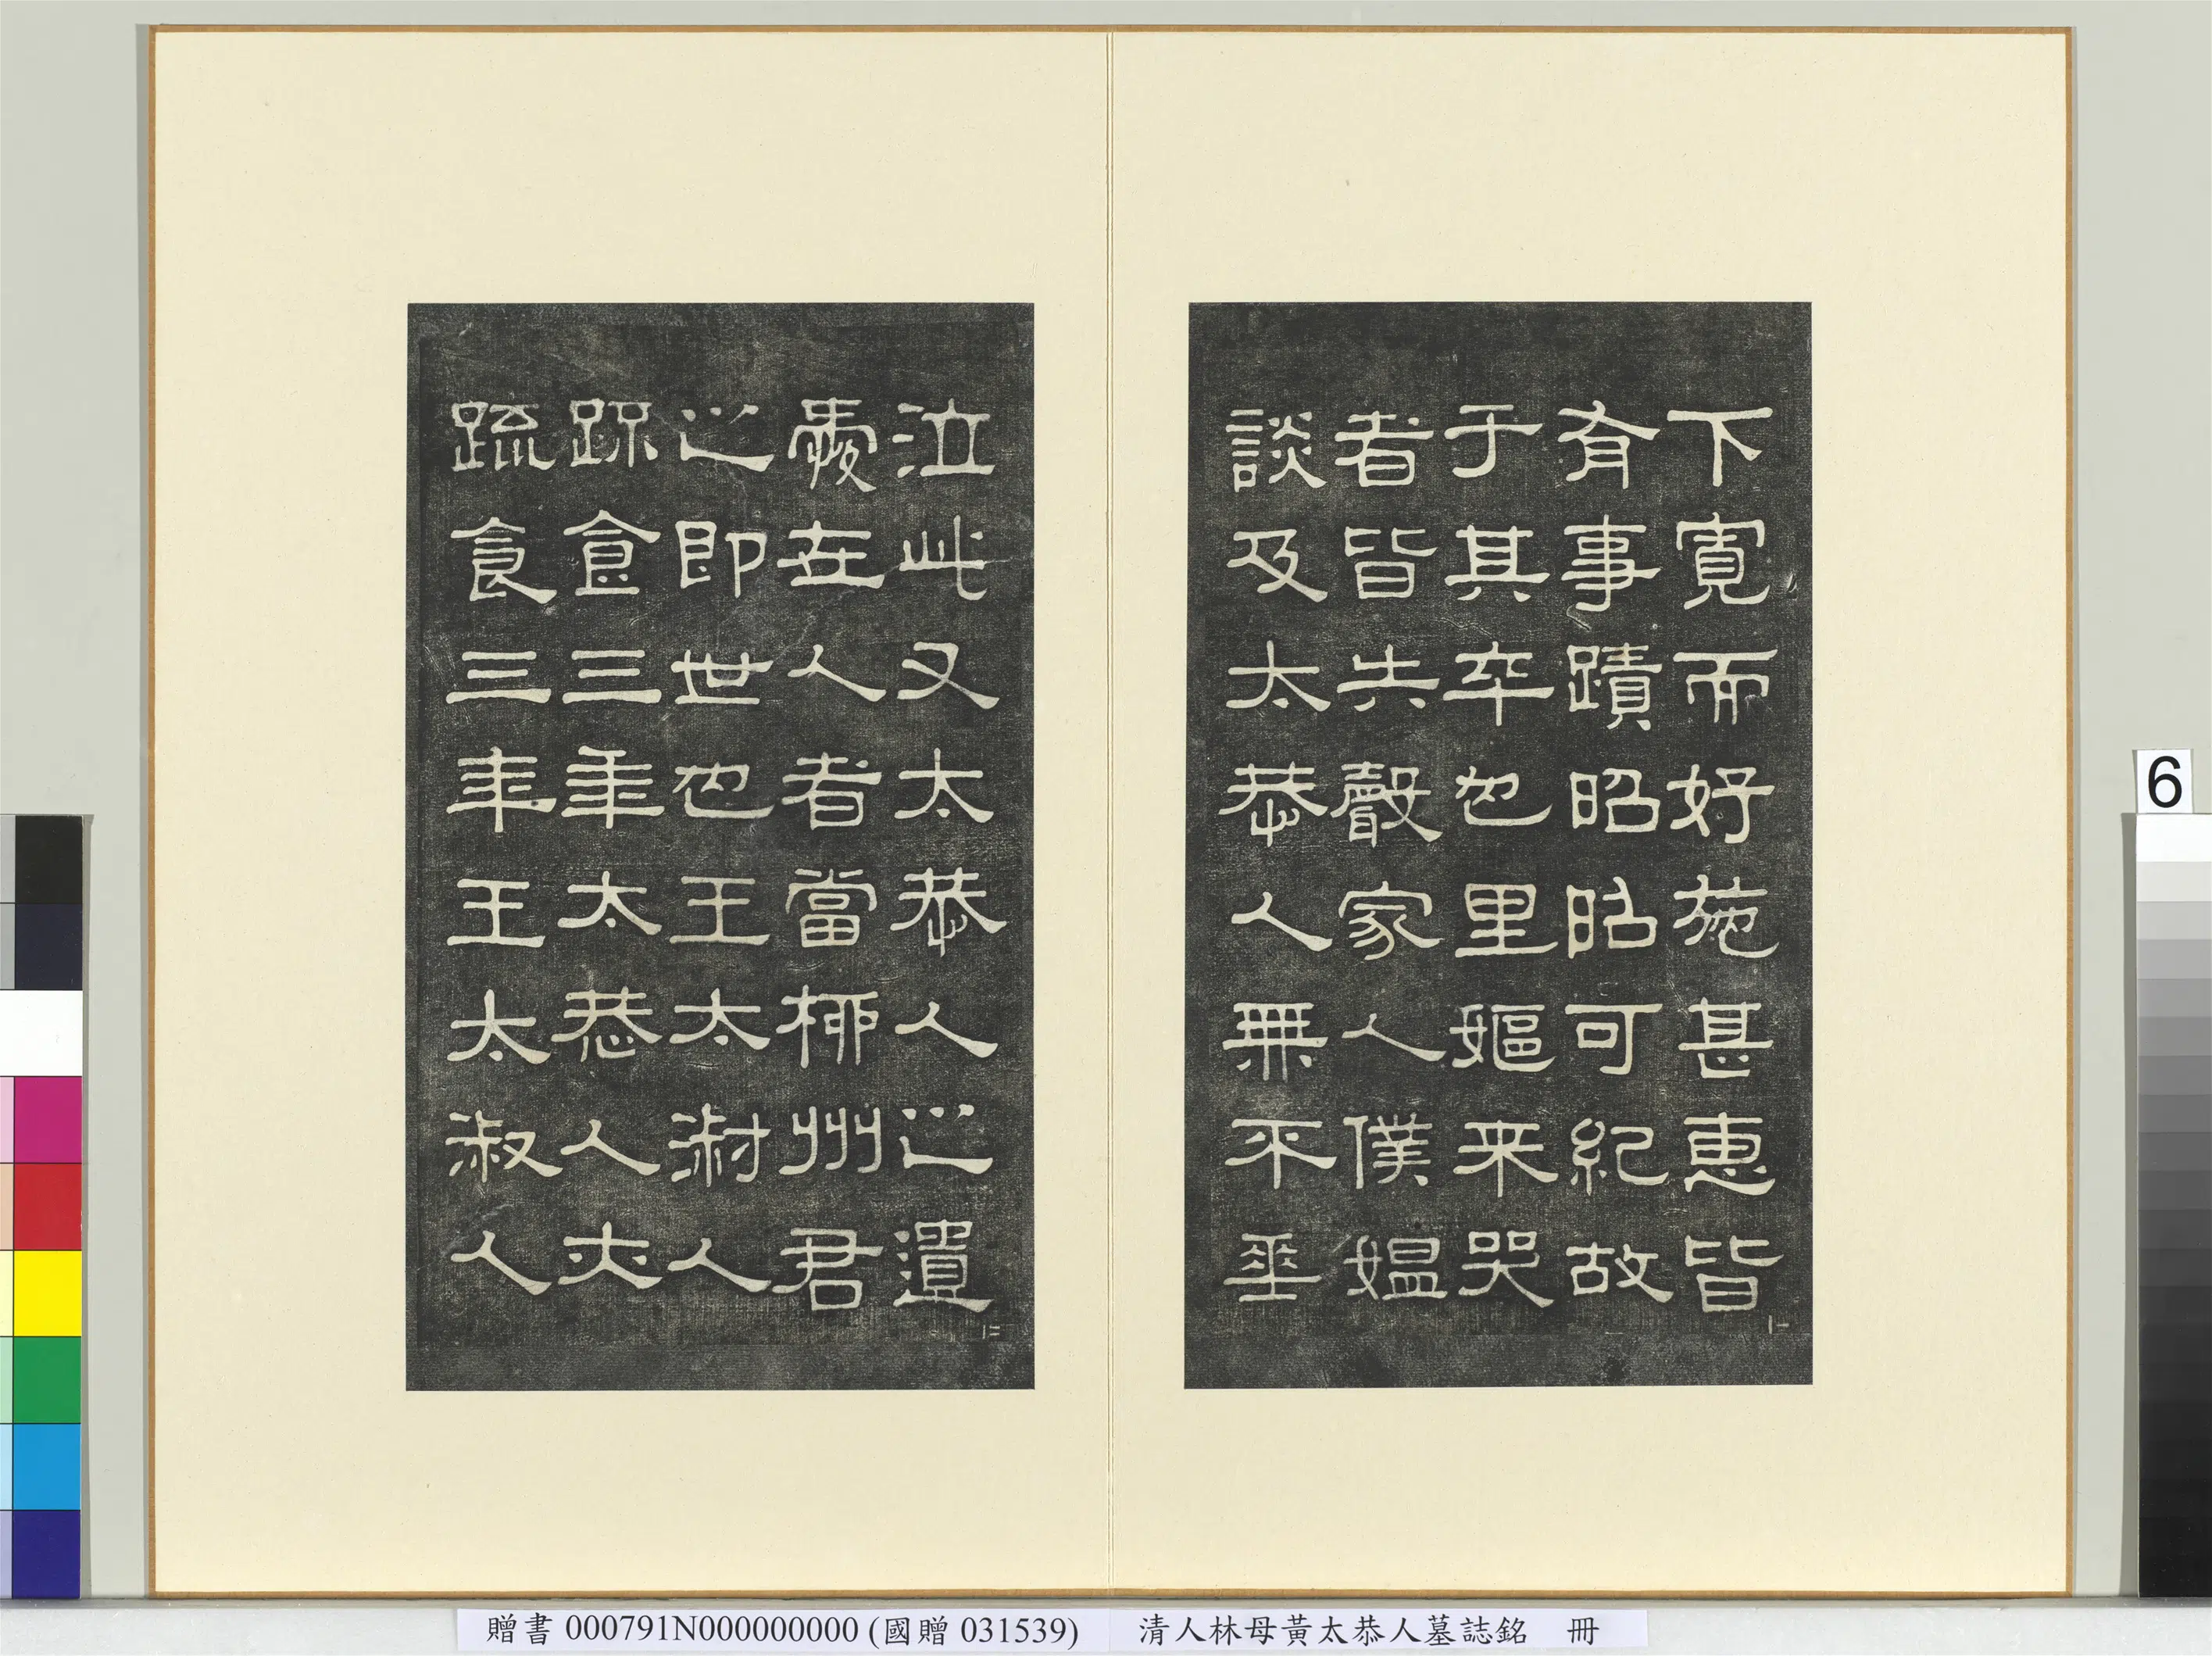 下寬而好施甚惠皆
有事蹟昭昭可紀故
于其卒也里嫗来哭
者皆失聲家人僕媼
談及太恭人無不垂
泣此又太恭人之遺
愛在人者當柳州君
之即世也王太淑人
疏食三年太恭人亦
疏食三年王太淑人
6
贈書 000791N000000000 (國贈 031539) 清人林母黃太恭人墓誌銘 冊